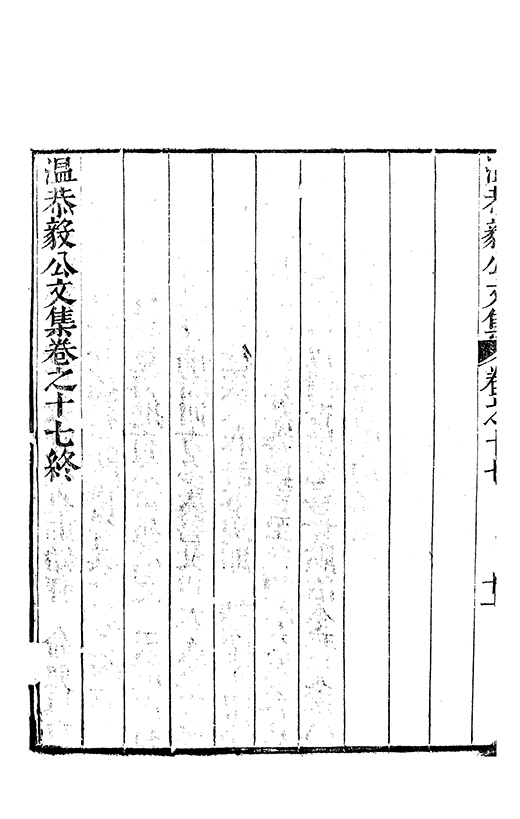 温恭毅公文集 卷之十七 十一
温恭毅公文集卷之十七終